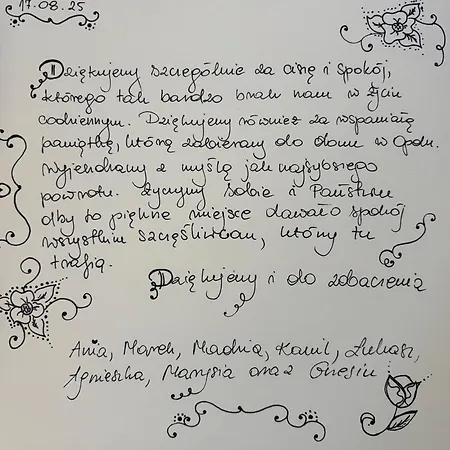 17.08.25
Dziękujemy szczególnie za ciszę i spokój,
którego tak bardzo brak nam w życiu
codziennym. Dziękujemy również za wspaniałą
pamiątkę, którą zabieramy do domu w Opolu.
Wyjeżdżamy z myślą jak najszybszego
powrotu. Życzymy sobie i Państwu
aby to piękne miejsce dawało spokój
wszystkim szczęśliwcom, którzy tu
trafią.
Dziękujemy i do zobaczenia
Ania, Marek, Kamil, Łukasz,
Agnieszka, Marysia oraz Grzesiu